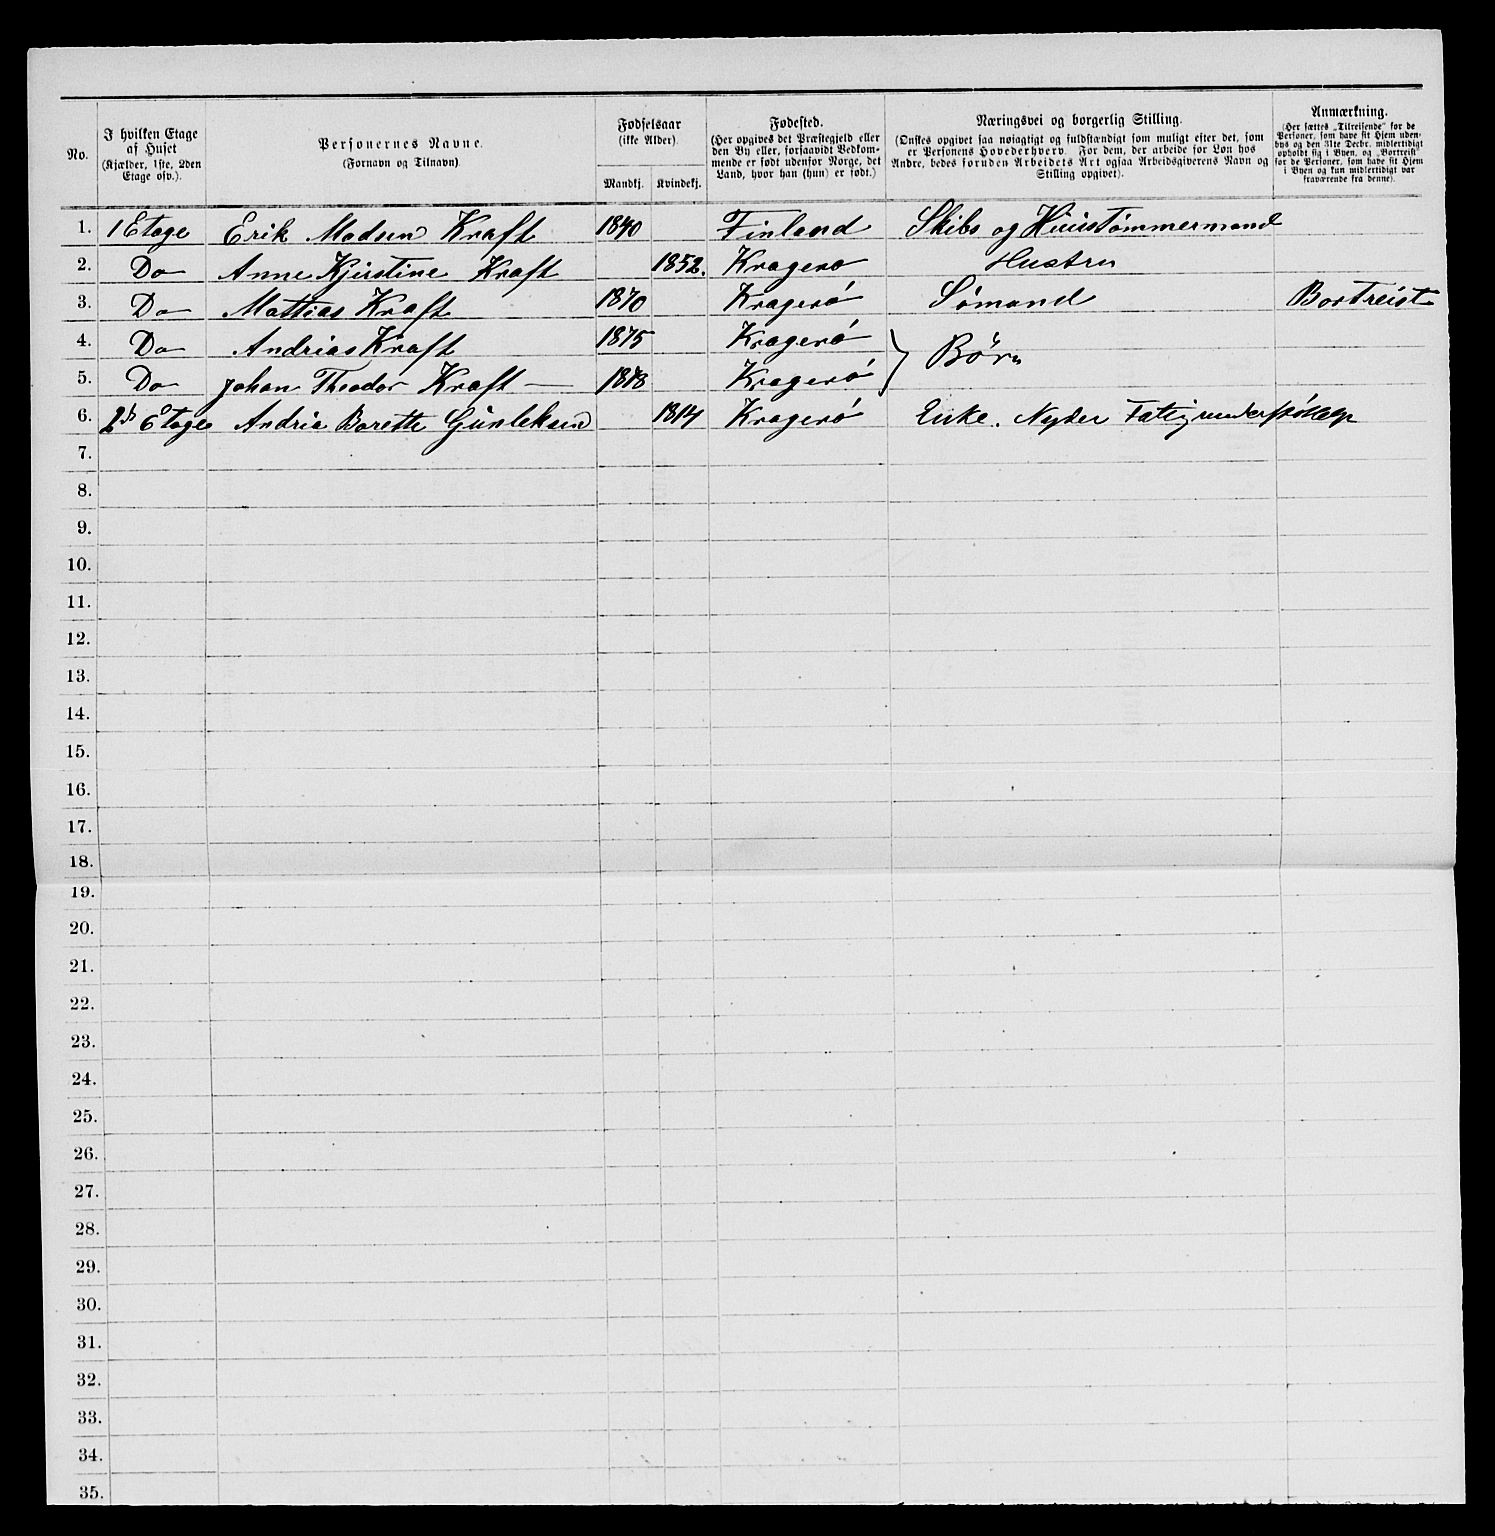 No.
I hvilken Etage
af Huset
(Kjælder, 1ste, 2den
Etage osv.).
Personernes Navne.
(Fornavn og Tilnavn).
Fødselsaar
(ikke Alder).
Mandkj. Kvindekj.
Fødested.
(Her opgives det Præstegjeld eller
den By eller, forsaavidt Vedkom-
mende er født udenfor Norge, det
Land, hvor han (hun) er født.)
Næringsvei og borgerlig Stilling.
(Ønskes opgivet saa nøiagtigt og fuldstændigt som muligt efter det, som
er Personens Hovederhverv. For dem, der arbeide for Løn hos
Andre, bedes foruden Arbeidets Art ogsaa Arbeidsgiverens Navn og
Stilling opgivet).
Anmærkning.
(Her sættes „Tilreisende" for de
Personer, som have sit Hjem uden-
bys og den 31te Decbr. midlertidigt
opholdt sig i Byen, og „Bortreist"
for de Personer, som have sit Hjem
i Byen og kun midlertidigt var
fraværende fra denne).
1. 1 Etage Erik Madsen Kraft 1840 Finland Skibs og Huustømmermand
2. Do Anne Kjirstine Kraft 1852. Kragerø Hustru
3. Do Mattias Kraft 1870 Kragerø Sømand Bortreist
4. Do Andrias Kraft 1875 Kragerø } Børn
5. Do Johan Theodor Kraft 1878 Kragerø
6. Etage Andria Borette Gunleksen 1814 Kragerø Enke. Nyder Fattigunderstøttelse
7.
8.
9.
10.
11.
12.
13.
14.
15.
16.
17.
18.
19.
20.
21.
22.
23.
24.
25.
26.
27.
28.
29.
30.
31.
32.
33.
34.
35.